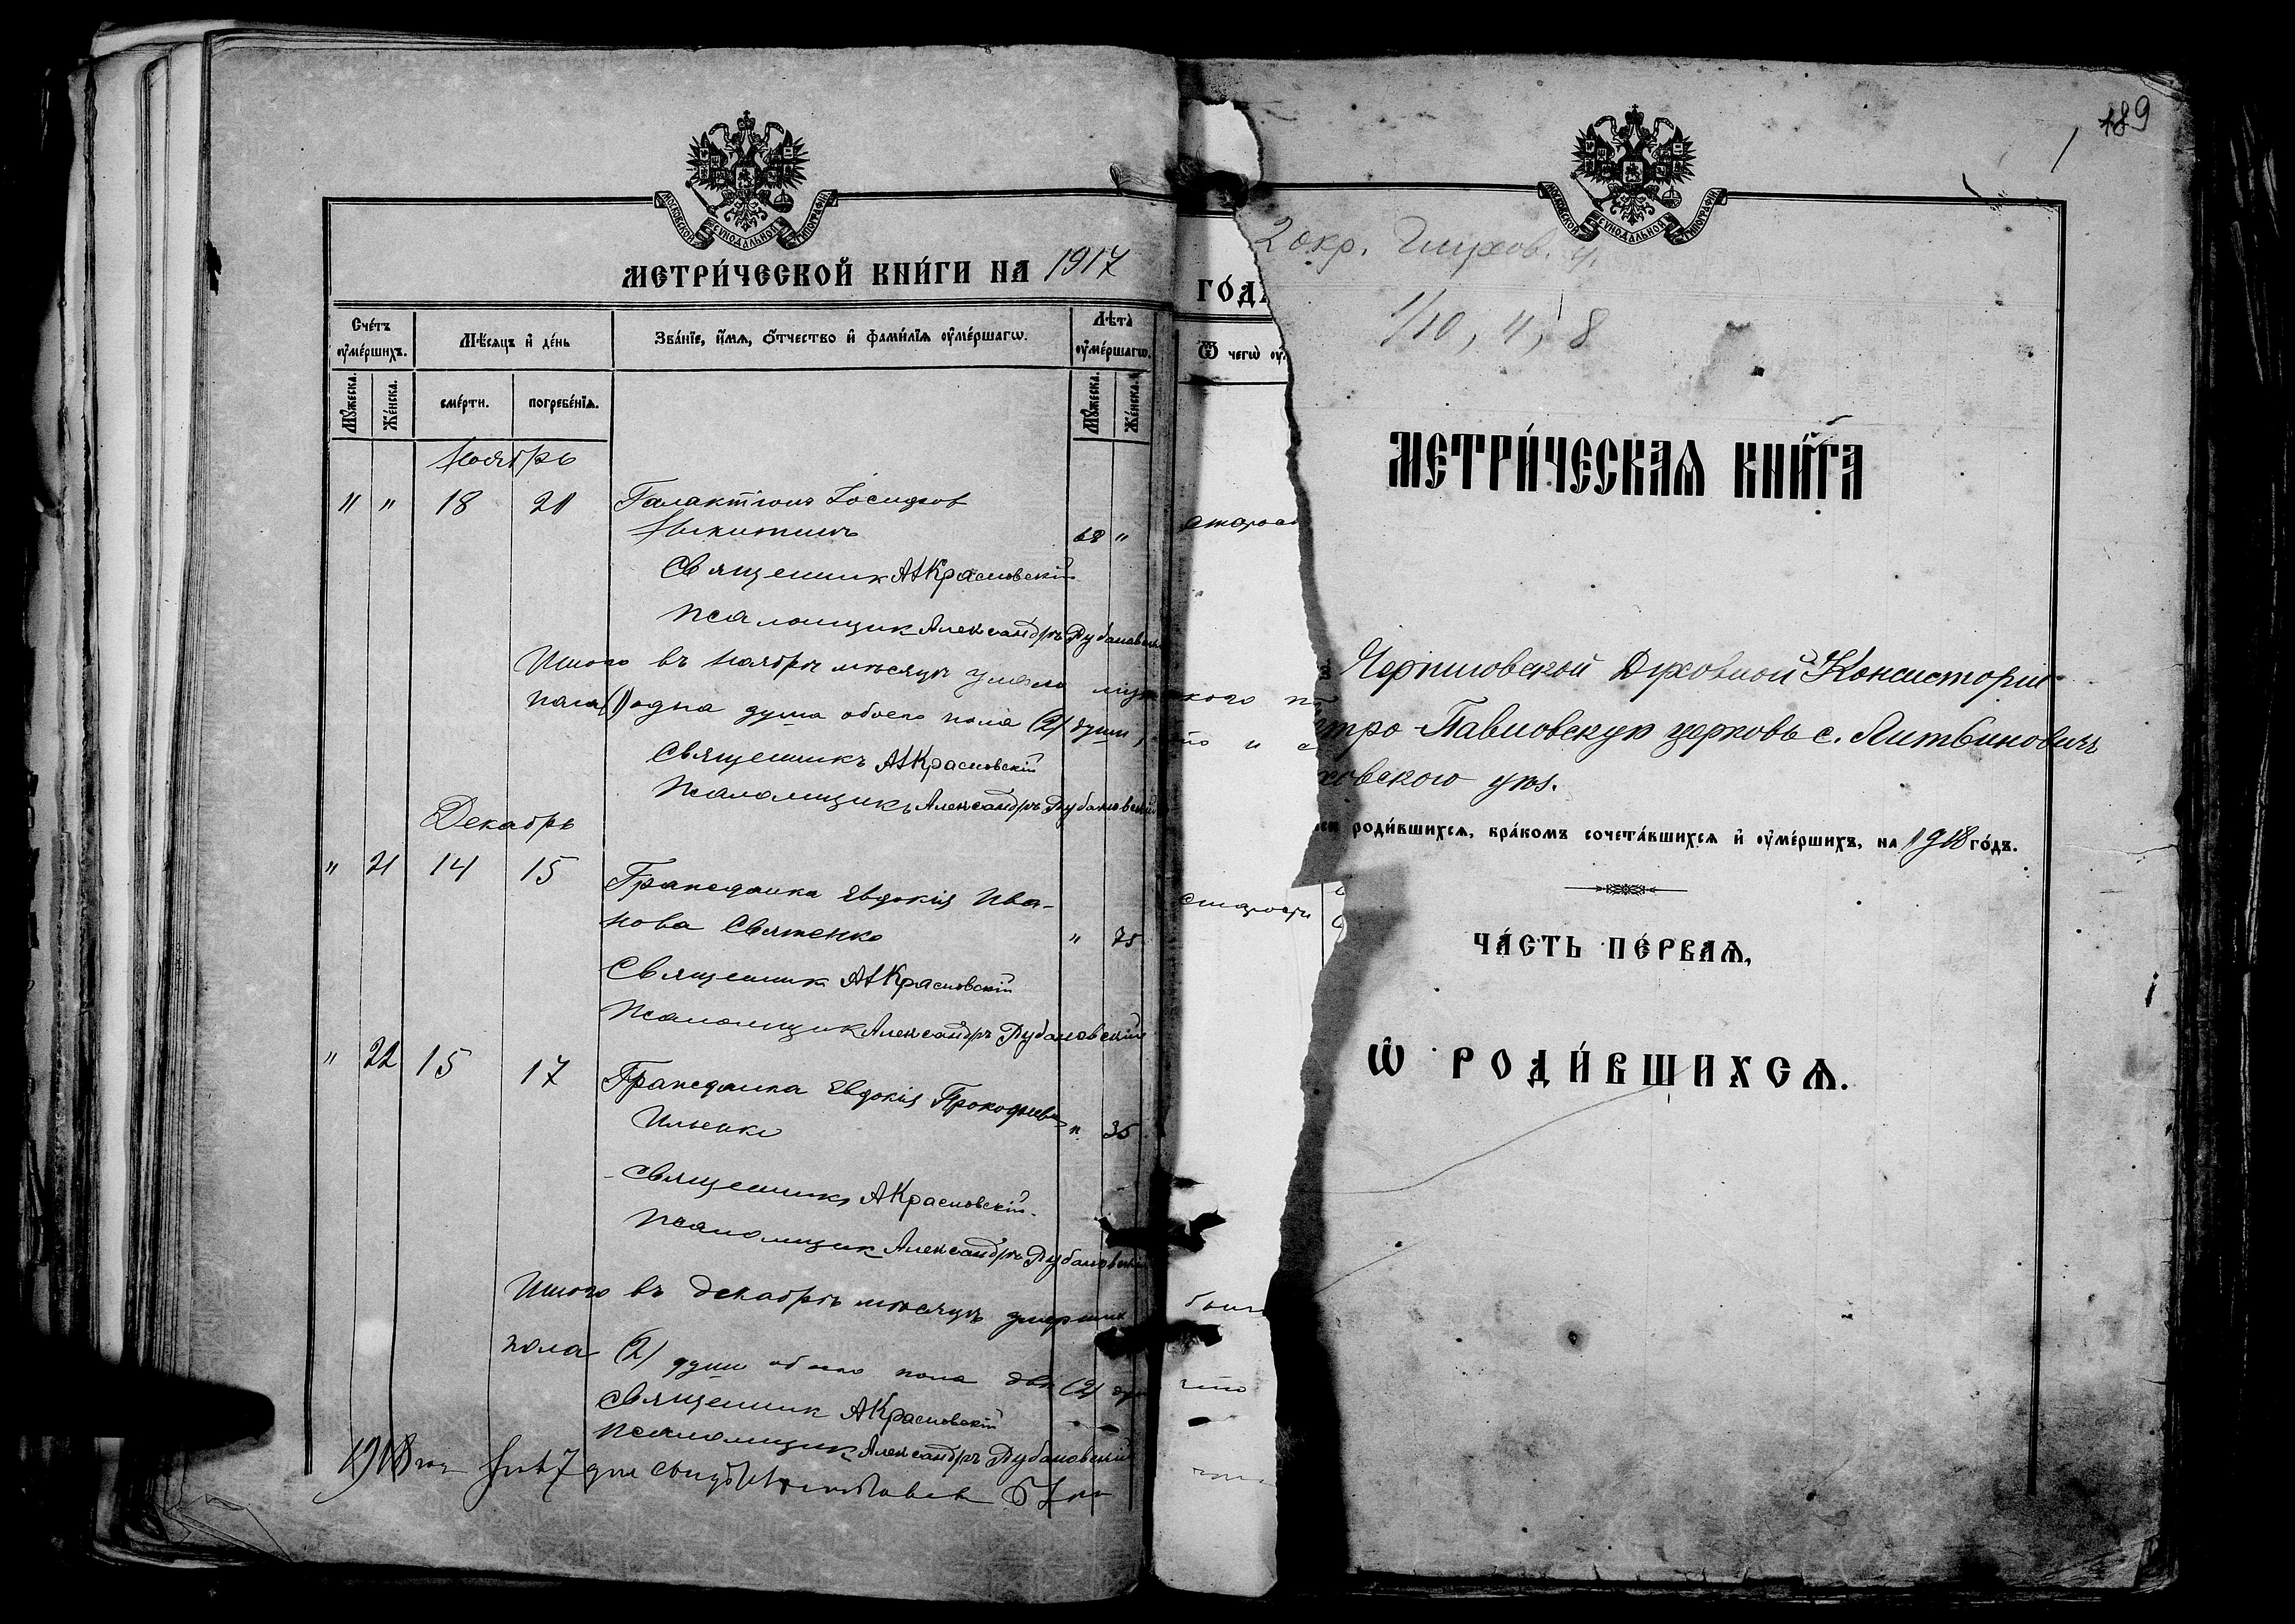 МОСКОВСКОЙ СУНОДАЛЬНОЙ ТИПОГРАФІИ
МЕТРИ́ЧЕСКОЙ КНИ́ГИ НА 1917
Сче́тъ ᲂу҆ме́ршихъ.
Мѣ́сяцъ и҆ де́нь
Зва́нїе, и҆́мѧ, ѻ҆́тчество и҆ фами́лїѧ ᲂу҆ме́ршагѡ.
Лѣта̀ ᲂу҆ме́ршагѡ.
Мꙋ́жеска. Же́нска. сме́рти. погребе́нїѧ. Мꙋ́жеска. Же́нска.
Ноябрь
" " 18 21 Галактіонъ Іосифов
Никитинъ 68 "
Священник А Красновскій
Псаломщик Александръ Дубановскій
Итого въ ноябрѣ мѣсяцѣ умерло мужского
пола (1) одна душа обоего пола (2) души,
Священникъ А Красновскій
Псаломщикъ Александръ Дубановскій
Декабрь
" 21 14 15 Гражданка Евдокія Ива-
нова Святенко " 75
Священник А Красновскій
Псаломщик Александръ Дубановскій
" 22 15 17 Гражданка Евдокія Прокофіева
Ильенко " 35
Священникъ А Красновскій
Псаломщик Александръ Дубановскій
Итого въ декабрѣ мѣсяцѣ умерших
пола (2) души обоего пола двѣ (2) душ
Священник А Красновскій
Псаломщик Александръ Дубановскій
1918
ГО́Д
Ѿ чегѡ̀ ᲂу҆
старос
старости
что
189
1
МОСКОВСКОЙ СУНОДАЛЬНОЙ ТИПОГРАФІИ
2 окр. Глухов. у.
1/10, 4, 8
МЕТРИ́ЧЕСКАѦ КНИ́ГА
Черниговской Духовной Консисторіи
тро-Павловскую церковь с. Литвиновичъ
ховского уѣз.
роди́вшихсѧ, бра́комъ сочета́вшихсѧ и҆ ᲂу҆ме́ршихъ, на 1918 го́дъ.
ЧА́СТЬ ПЕ́РВАѦ,
Ѡ҆ РОДИ́ВШИХСѦ.